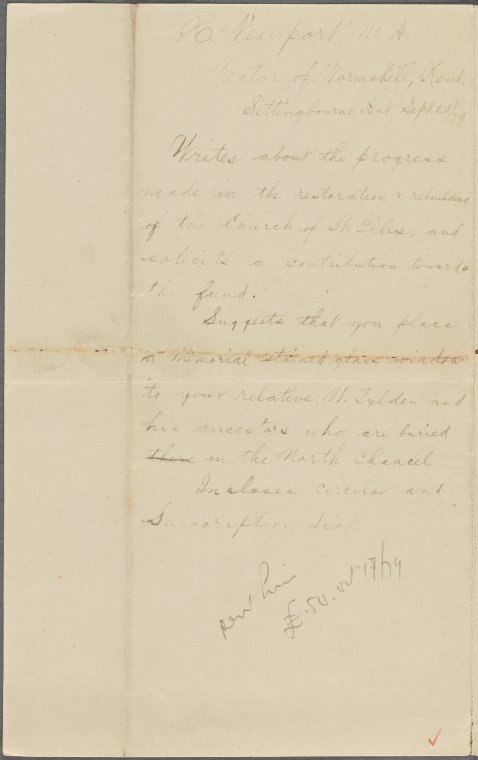 H. Newport, M.A.
Rector of Wormshill, Kent.
Sittingbourne, Kent Sept. 23/79
Writes about the progress
made in the restoration & rebuilding
of the Church of St. Giles; and
solicits a contribution towards
the fund.
Suggests that you place
a Memorial stained glass window
to your relative, W. Tylden and
his ancestors who are buried
there in the North Chancel
Incloses circular and
Subscription List.
sent him
£.50. Oct 17/79